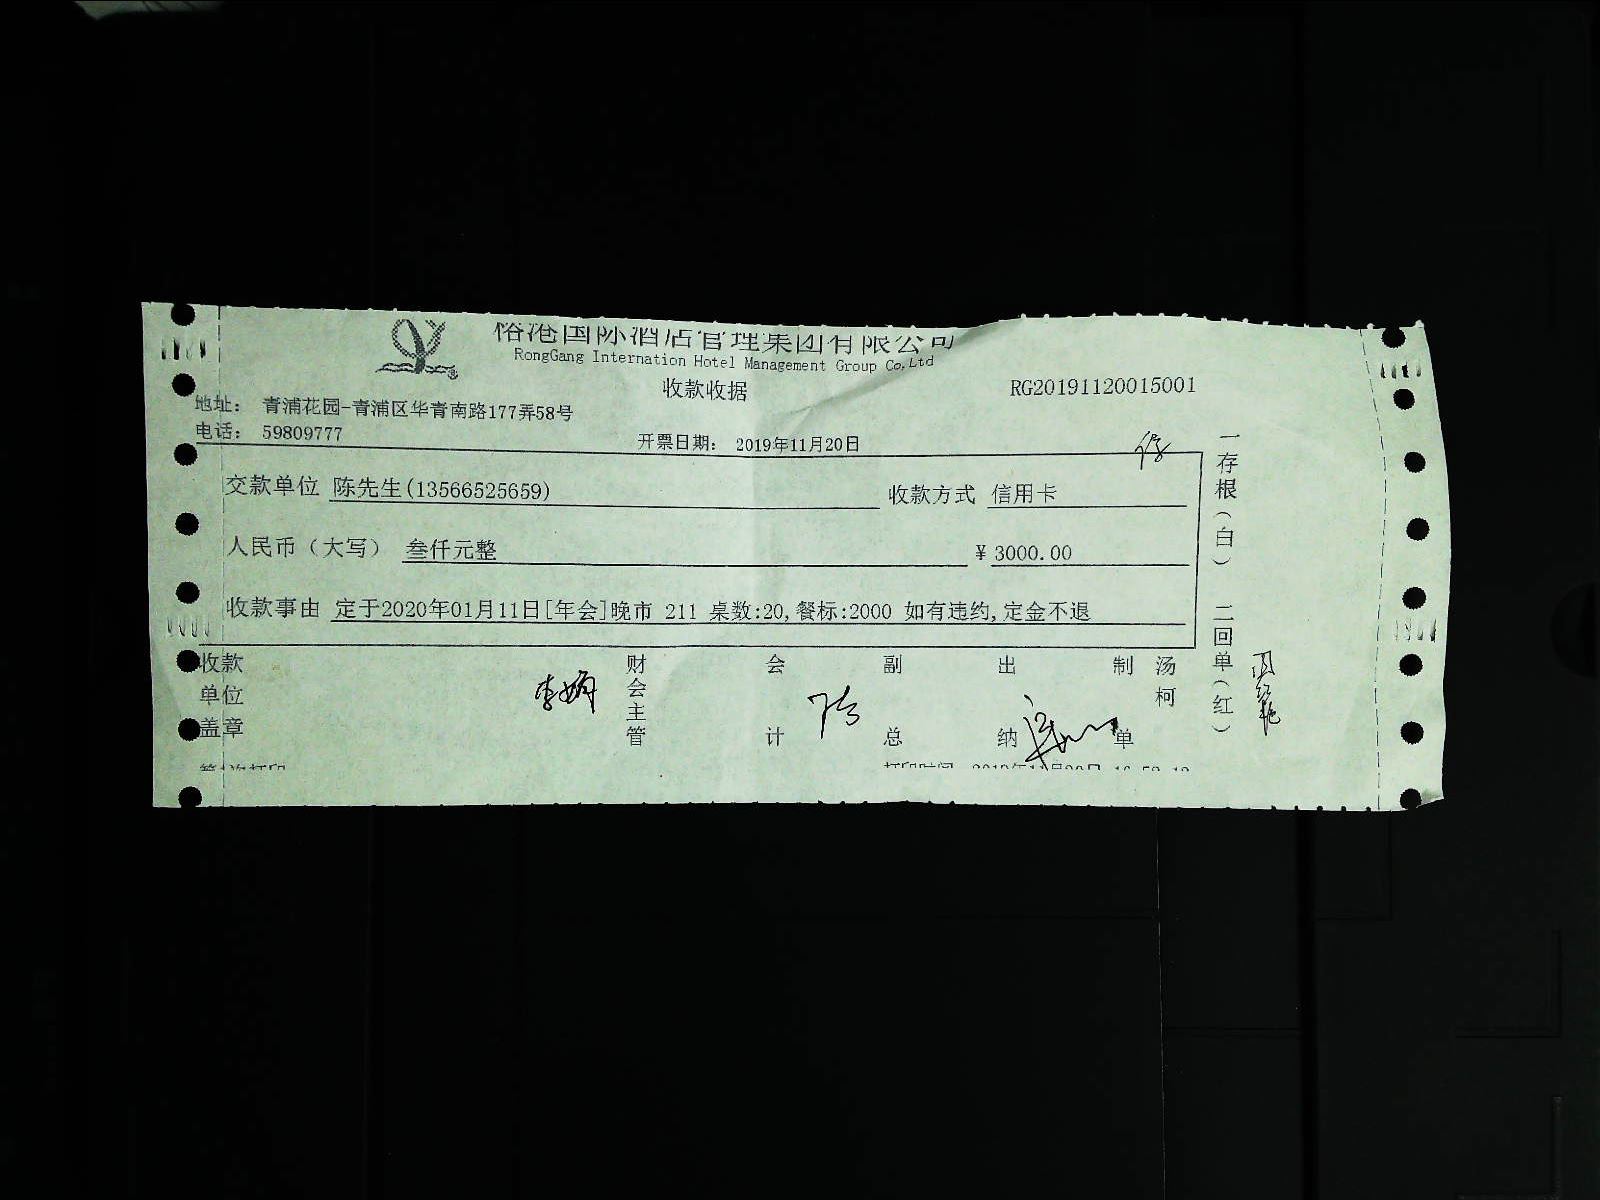 国际酒店管理集团有限公司
RongGang Internation Hotel Management Group Co,Ltd
收款收据
RG20191120015001
地址: 青浦花园-青浦区华青南路177弄58号
电话: 59809777
开票日期: 2019年11月20日
交款单位 陈先生(13566525659)
收款方式 信用卡
人民币(大写) 叁仟元整
¥ 3000.00
收款事由 定于2020年01月11日[年会]晚市 211 桌数:20,餐标:2000 如有违约,定金不退
一存根(白) 二回单(红)
收款单位盖章
财会主管
会计
副总
出纳
制单
汤柯